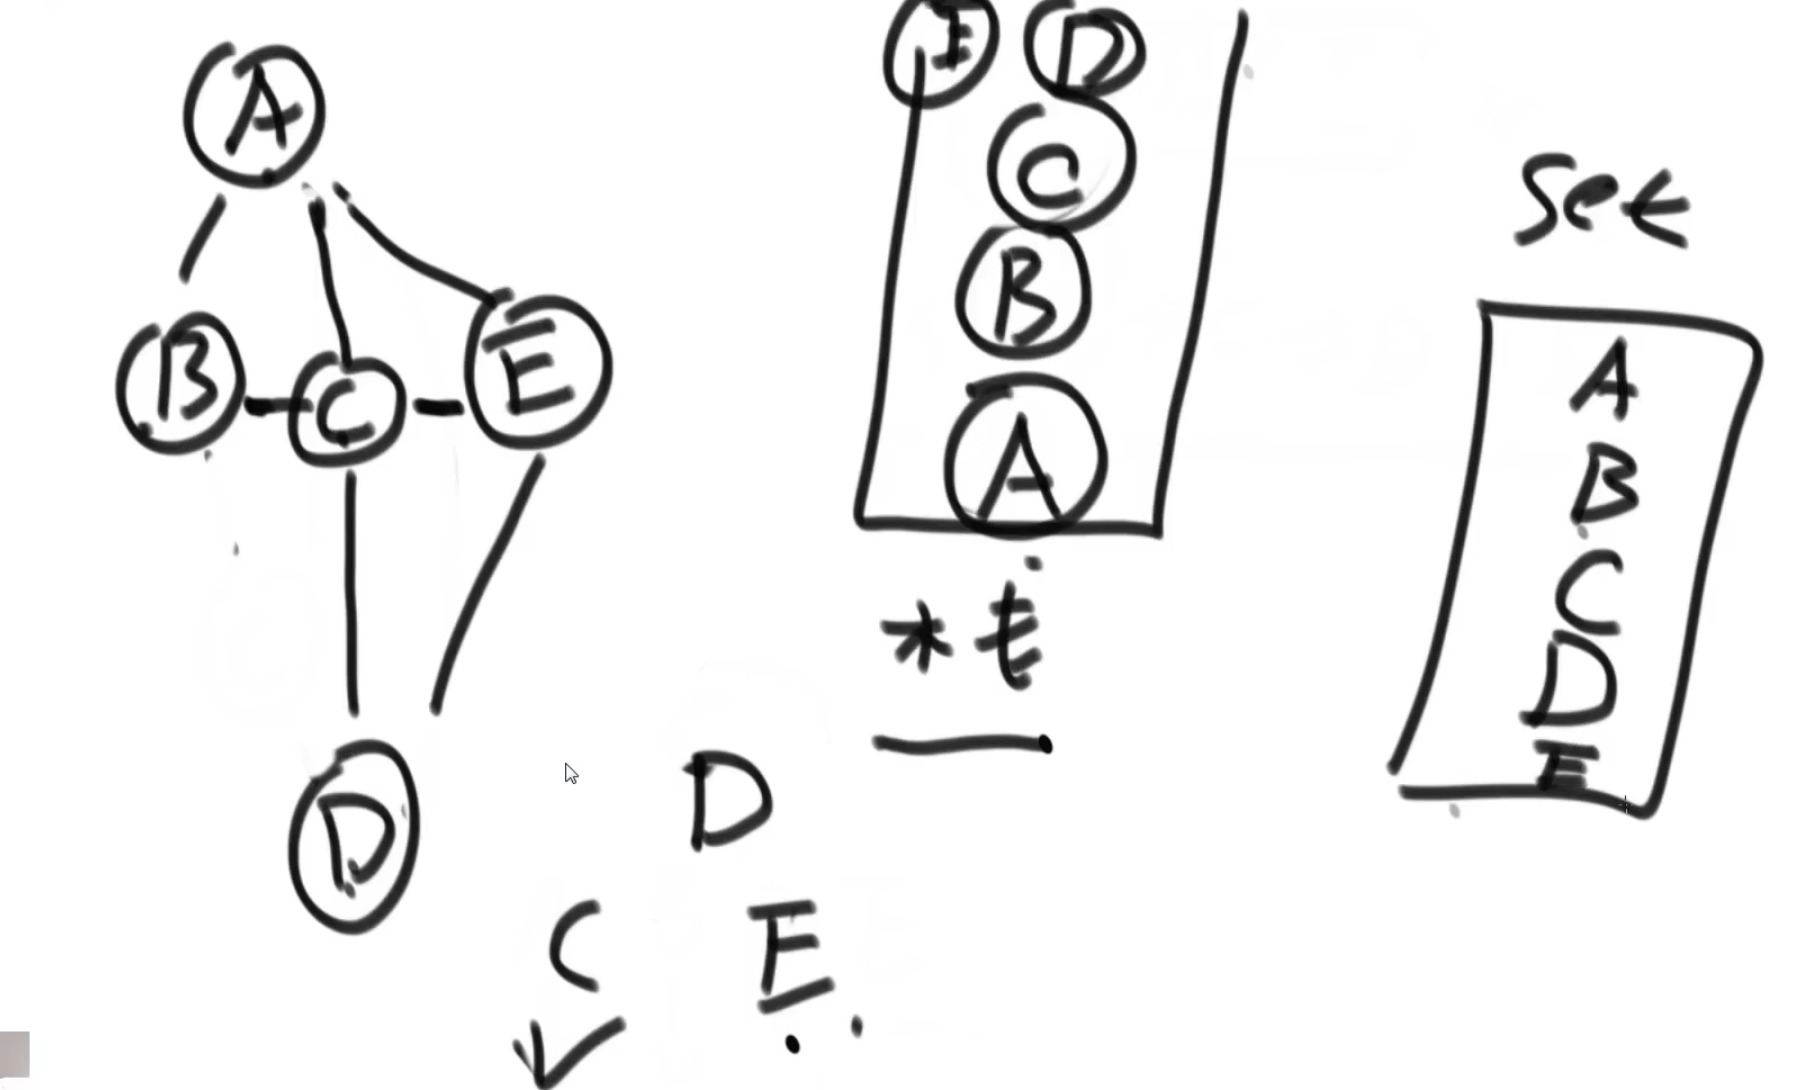 A
B C E
D
E D
C
B
A
* t
D
C E
Set
A
B
C
D
E